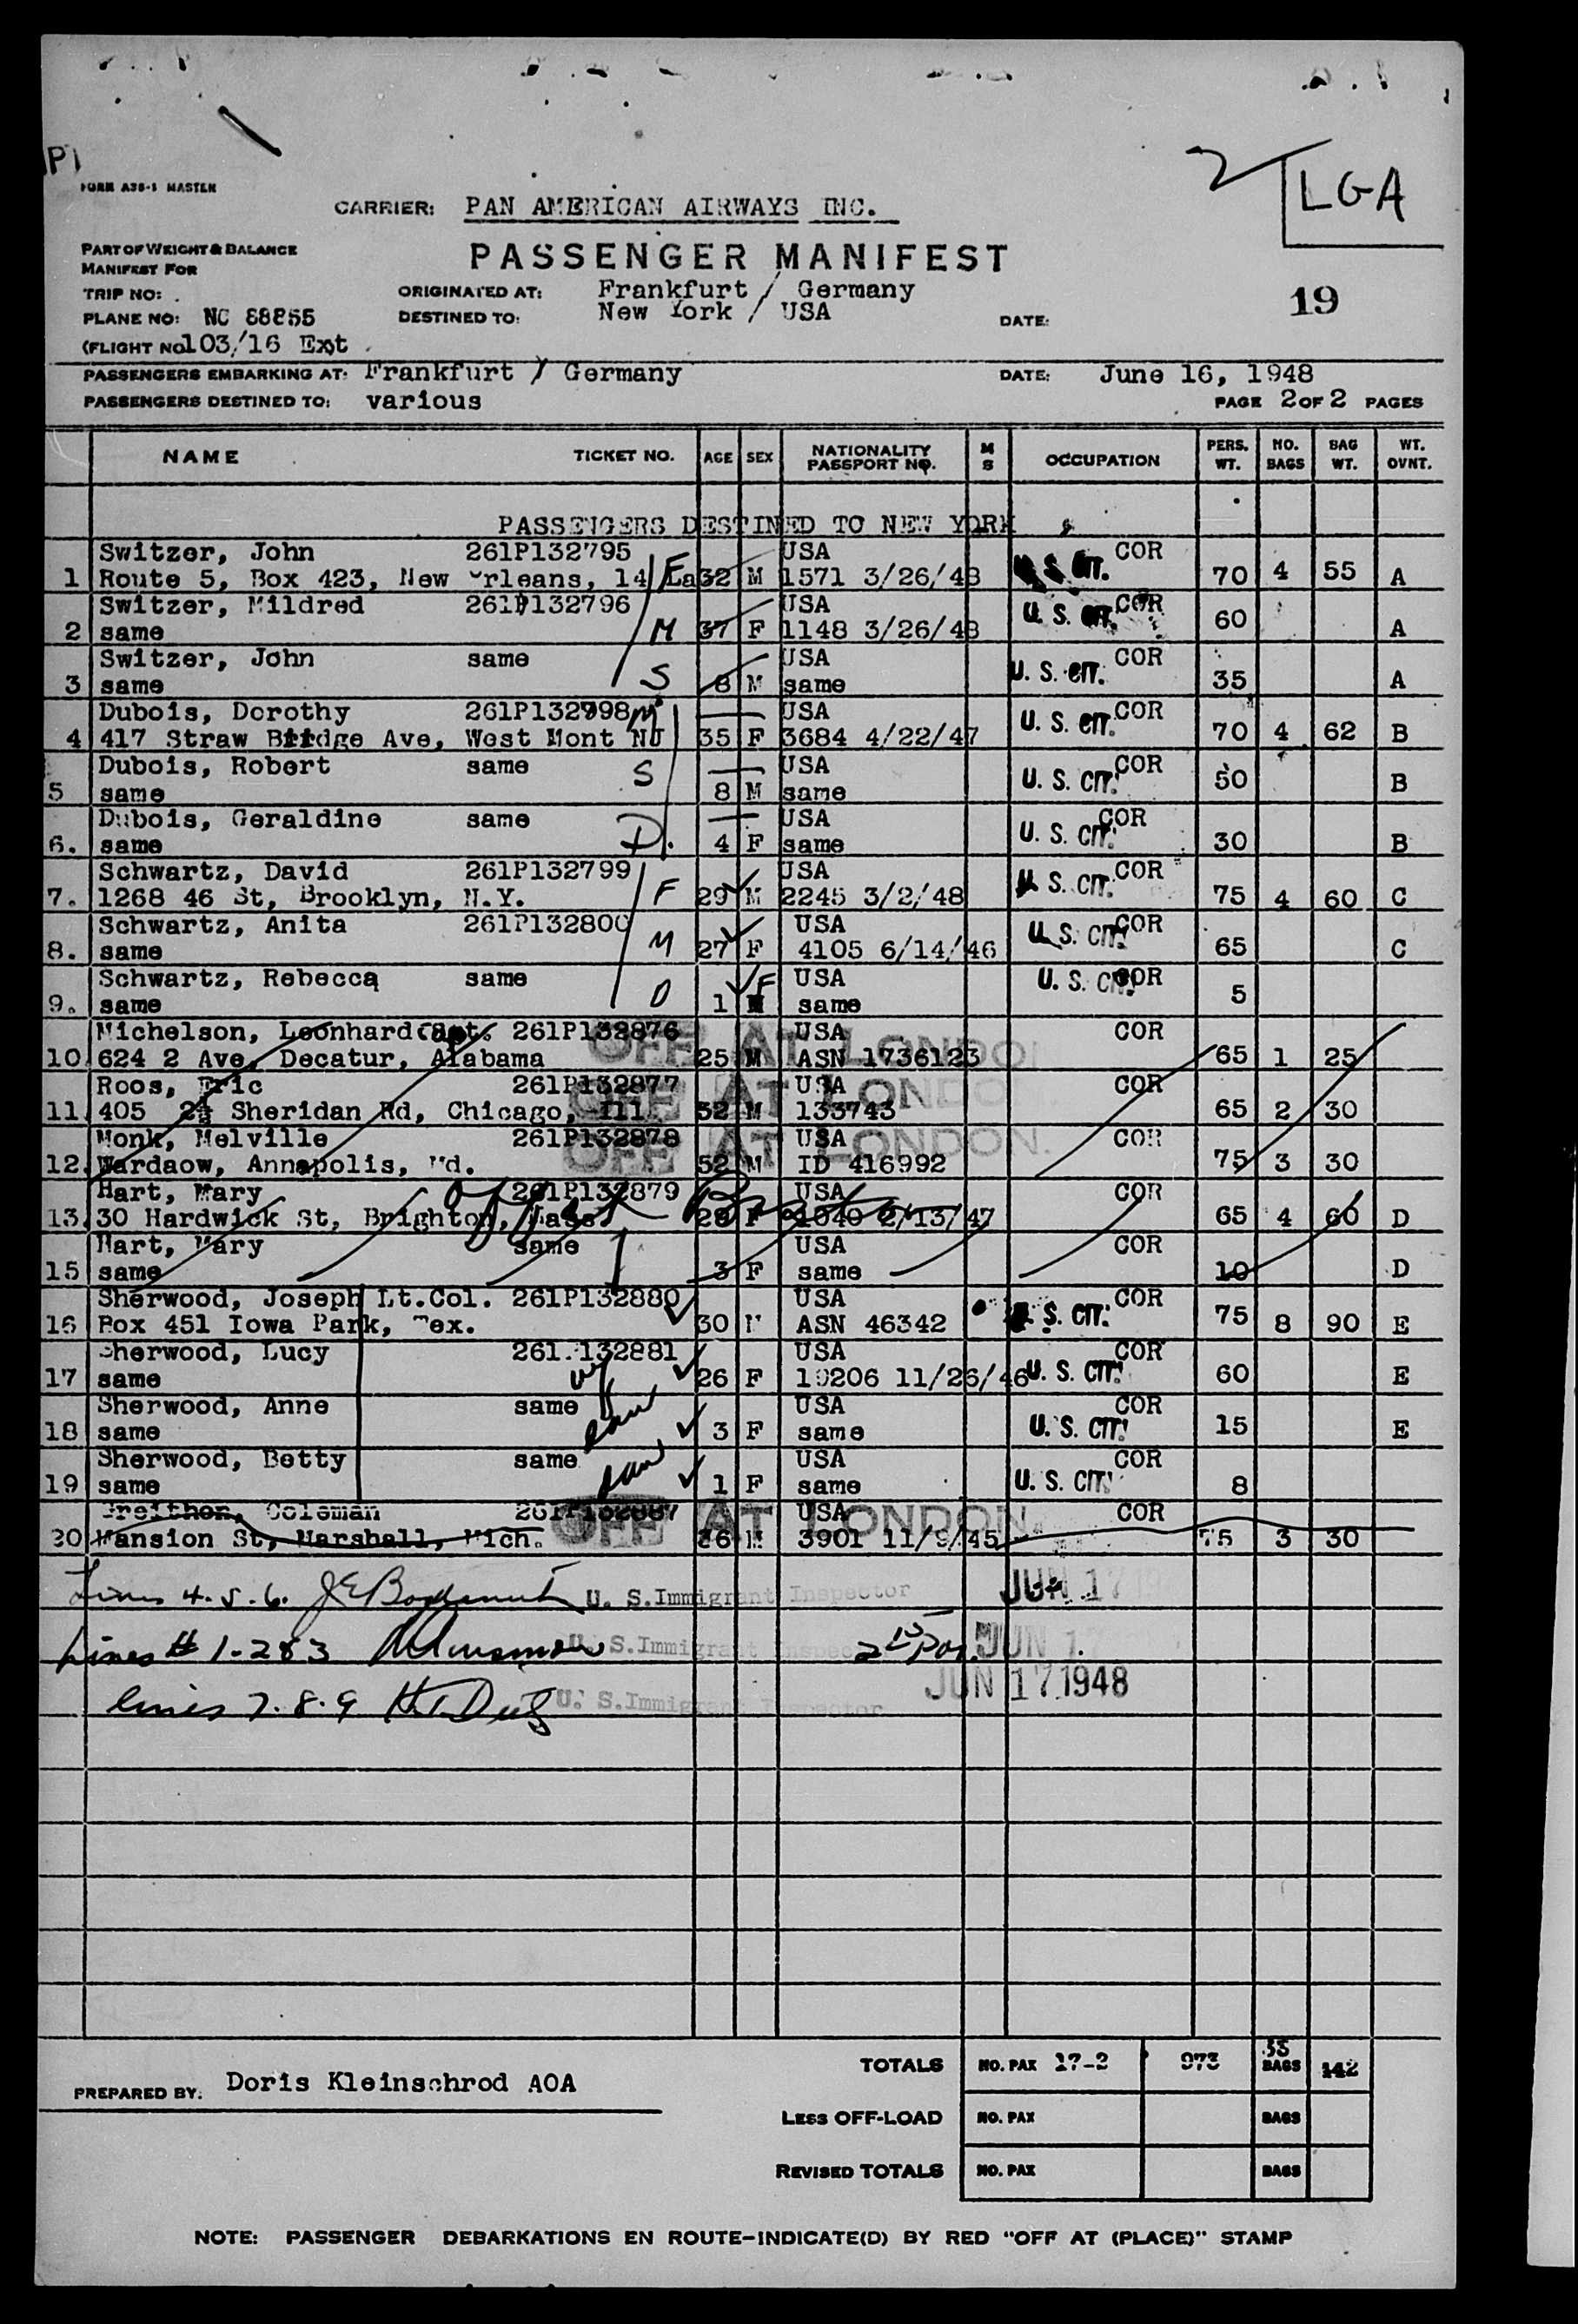 FORM A38-1 MASTER
2/ LGA
CARRIER: PAN AMERICAN AIRWAYS INC.
PART OF WEIGHT & BALANCE
MANIFEST FOR
PASSENGER MANIFEST
TRIP NO:
ORIGINATED AT: Frankfurt / Germany
19
PLANE NO: NC 88855
DESTINED TO: New York / USA
DATE:
(FLIGHT NO 103/16 Ext
PASSENGERS EMBARKING AT: Frankfurt / Germany DATE: June 16, 1948
PASSENGERS DESTINED TO: various PAGE 2 OF 2 PAGES
NAME TICKET NO. AGE SEX NATIONALITY PASSPORT NO. M S OCCUPATION PERS. WT. NO. BAGS BAG WT. WT. OVNT.
PASSENGERS DESTINED TO NEW YORK
Switzer, John 261P132795 USA COR
1 Route 5, Box 423, New Orleans, 14 La F 32 M 1571 3/26/48 U. S. CIT. 70 4 55 A
Switzer, Mildred 261P132796 USA COR
2 same M 37 F 1148 3/26/48 U. S. CIT. 60 A
Switzer, John same USA COR
3 same S 8 M same U. S. CIT. 35 A
Dubois, Dorothy 261P132998 M USA COR
4 417 Straw Bridge Ave, West Mont NJ 35 F 3684 4/22/47 U. S. CIT. 70 4 62 B
Dubois, Robert same S USA COR
5 same 8 M same U. S. CIT. 50 B
Dubois, Geraldine same D. USA COR
6. same 4 F same U. S. CIT. 30 B
Schwartz, David 261P132799 USA COR
7. 1268 46 St, Brooklyn, N.Y. F 29 M 2245 3/2/48 U. S. CIT. 75 4 60 C
Schwartz, Anita 261P132800 USA COR
8. same M 27 F 4105 6/14/46 U. S. CIT. 65 C
Schwartz, Rebecca same F USA COR
9. same D 1 same U. S. CIT. 5
Michelson, Leonhard Capt. 261P132876 USA COR
OFF AT LONDON
10. 624 2 Ave, Decatur, Alabama 25 M ASN 1736123 65 1 25
Roos, Eric 261P132877 USA COR
OFF AT LONDON.
11. 405 Sheridan Rd, Chicago, Ill. 52 M 133743 65 2 30
Monk, Melville 261P132878 USA COR
OFF AT LONDON.
12. Wardaow, Annapolis, Md. 52 M ID 416992 75 3 30
Hart, Mary 261P132879 USA COR
off at
13. 30 Hardwick St, Brighton, Mass. 28 F 1040 2/13/47 65 4 60 D
Hart, Mary same USA COR
15 same 3 F same 10 D
Sherwood, Joseph Lt.Col. 261P132880 USA COR
16 Box 451 Iowa Park, Tex. 30 M ASN 46342 U. S. CIT. 75 8 90 E
Sherwood, Lucy 261P132881 USA COR
17 same wf 26 F 10206 11/26/46 U. S. CIT. 60 E
Sherwood, Anne same USA COR
18 same dau 3 F same U. S. CIT. 15 E
Sherwood, Betty same USA COR
19 same dau 1 F same U. S. CIT. 8
Coleman 261P132887 USA COR
OFF AT LONDON.
20 Mansion St, Marshall, Mich. 36 M 3901 11/9/45 75 3 30
Lines 4.5.6. U. S. Immigrant Inspector JUN 17
Lines # 1-2&3 U. S. Immigrant Inspector JUN 1
lines 7.8.9 U. S. Immigrant Inspector JUN 17 1948
TOTALS NO. PAX 17-2 973 35 BAGS 442
PREPARED BY: Doris Kleinschrod AOA
LESS OFF-LOAD NO. PAX BAGS
REVISED TOTALS NO. PAX BAGS
NOTE: PASSENGER DEBARKATIONS EN ROUTE-INDICATE(D) BY RED "OFF AT (PLACE)" STAMP